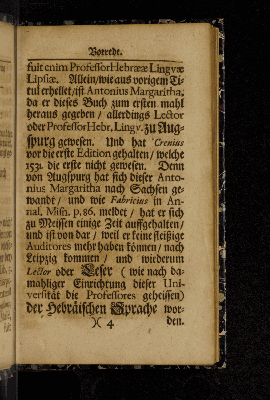 Vorrede.
fuit enim Professor Hebrææ Lingvæ
Lipsiæ. Allein/ wie aus vorigem Ti-
tul erhellet/ ist Antonius Margaritha,
da er dieses Buch zum ersten mahl
heraus gegeben / allerdings Lector
oder Professor Hebr. Lingv. zu Aug-
spurg gewesen. Und hat Crenius
vor die erste Edition gehalten/ welche
1531. die erste nicht gewesen. Denn
von Augspurg hat sich dieser Anto-
nius Margaritha nach Sachsen ge-
wandt/ und wie Fabricius in An-
nal. Misn. p. 86. meldet/ hat er sich
zu Meissen einige Zeit auffgehalten/
und ist von dar/ weil er keine fleißige
Auditores mehr haben können/ nach
Leipzig kommen/ und wiederum
Lector oder Leser ( wie nach da-
mahliger Einrichtung dieser Uni-
versität die Professores geheissen)
der Hebräischen Sprache wor-
)( 4 den.